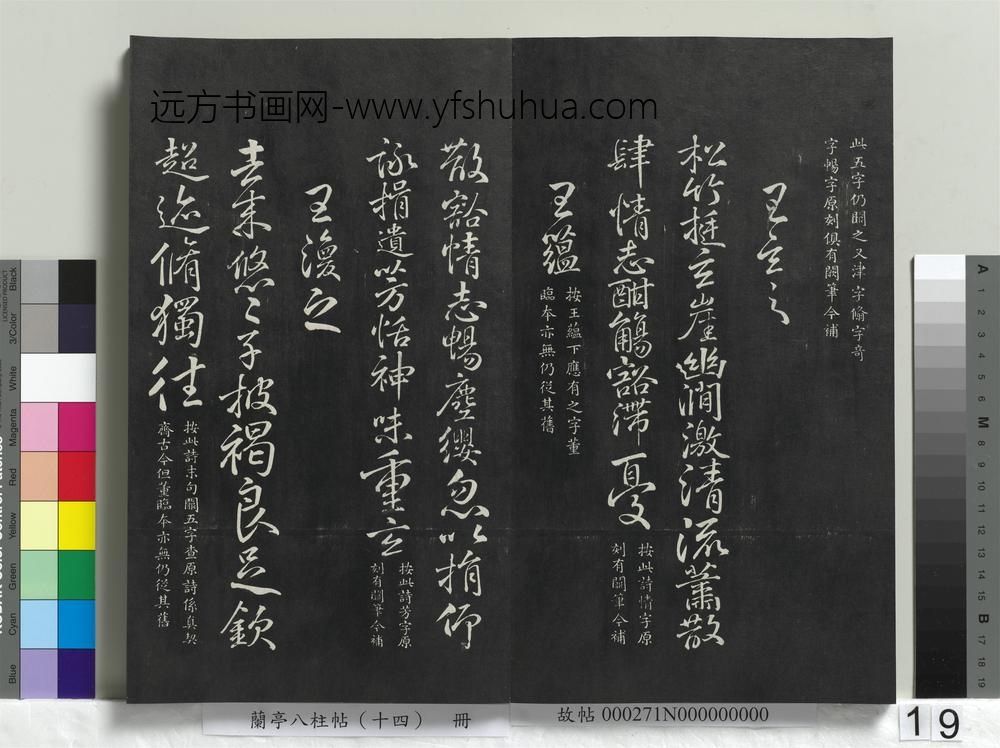 远方书画网-www.yfshuhua.com
此五字仍闕之又津字脩字奇
字暢字原刻俱有闕筆今補
王玄之
松竹挺玄崖幽澗激清流蕭散
肆情志酣觴豁滯憂
按此詩情字原
刻有闕筆今補
王蘊
按王蘊下應有之字董
臨本亦無仍從其舊
散豁情志暢塵纓忽以捐仰
詠挹遺芳怡神味重玄
按此詩芳字原
刻有闕筆今補
王渙之
去來悠悠子披褐良足欽
超迹脩獨往
按此詩末句闕五字查原詩係真契
齊古今但董臨本亦無仍從其舊
蘭亭八柱帖（十四） 冊
故帖 000271N000000000
19
Black
3/Color
White
Magenta
Red
Yellow
Green
Cyan
Blue
A 1 2 3 4 5 6 M 8 9 10 11 12 13 14 15 B 17 18 19